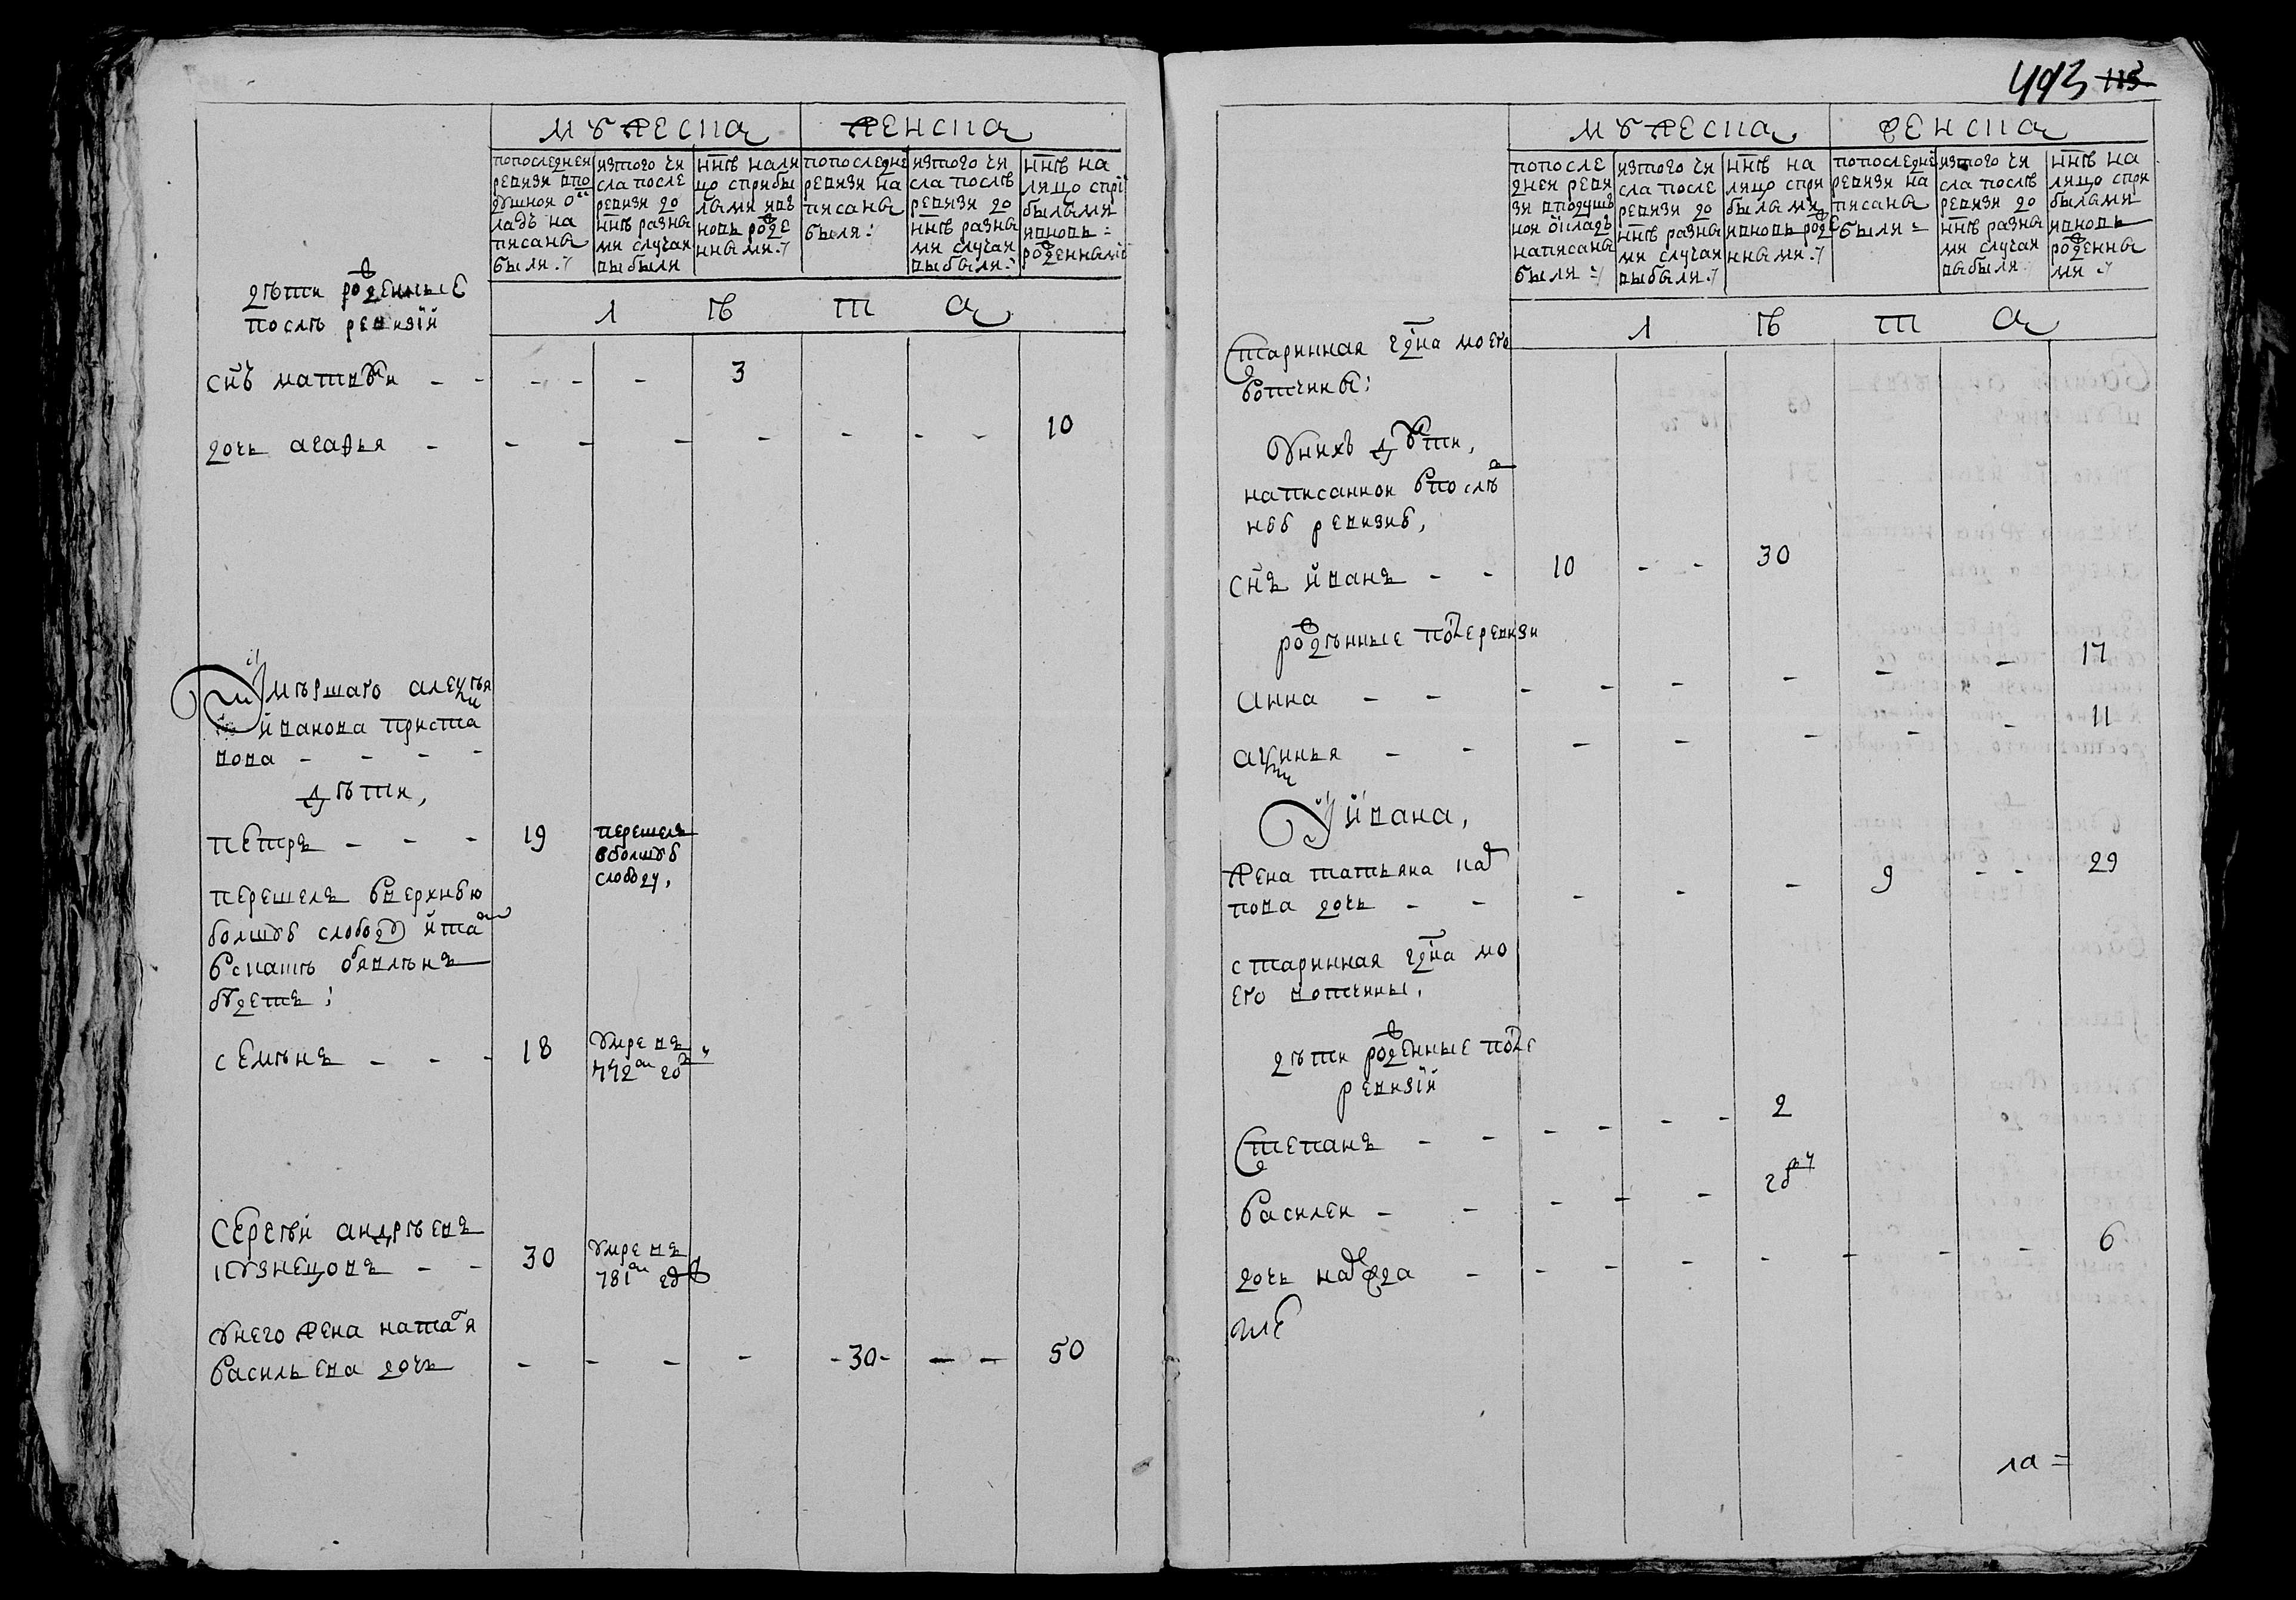 мужеска
женска
попоследней
ревизи впо
душной о
ладъ на
писаны
были:/
изтого чи
сла после
ревизи до
ннѣ разны
ми случаи
выбыли
ннѣ нали
цо сприбы
лыми ивъ
новь роде
нными:/
попоследне
ревизи на
писаны
были:
изтого чи
сла послѣ
ревизи до
ннѣ разны
ми случаи
выбыли:/
ннѣ на
лицо спри
былыми
ивновь
рожденными
л ѣ т а
дѣти рожденные
послѣ ревизïй
снъ матвѣи - - - - - 3
дочь агафья - - - - - - - - 10
умѣршаго алеѯѣя
иванова приста
вова - - - -
дѣти,
петръ - - - 19
перешелъ
вболшую
слободу,
перешелъ вверхнюю
болшую слободу ита
вскатъ объявлѣнъ
будетъ:
семѣнъ - - - 18
умре въ
772м год
сергѣй андрѣевъ
кузнецовъ - - 30
умре въ
781м год
унего жена наталя
васильева дочь - - - - -30- - - 50
493 115
мужеска
женска
попосле
дней реви
зи вподуш
ной окладъ
написаны
были:/
изтого чи
сла после
ревизи до
ннѣ разны
ми случаи
выбыли:/
ннѣ на
лицо спри
былыми
ивновь роде
нными:/
попоследне
ревизи на
писаны
были:
изтого чи
сла послѣ
ревизи до
ннѣ разны
ми случаи
выбыли:/
ннѣ на
лицо спри
былыми
ивновь
рожденны
ми:/
л ѣ т а
старинная чдна моего
вотчины:
унихъ дѣти,
написанной впослѣ
нѣй ревизиѣ,
снъ иванъ - - 10 - - 30
рождѣнные послеревизи
анна - - - - - - - - 17
аѯинья - - - - - - - 11
уивана,
жена татьяна кар
пова дочь - - - - - 9 - - 29
старинная чдна мо
его вотчины,
дѣти рожденные после
ревизïй
степанъ - - - - - - 2
василеи - - - - - год
дочь надежда - - - - - - - - 6
ме
ла =